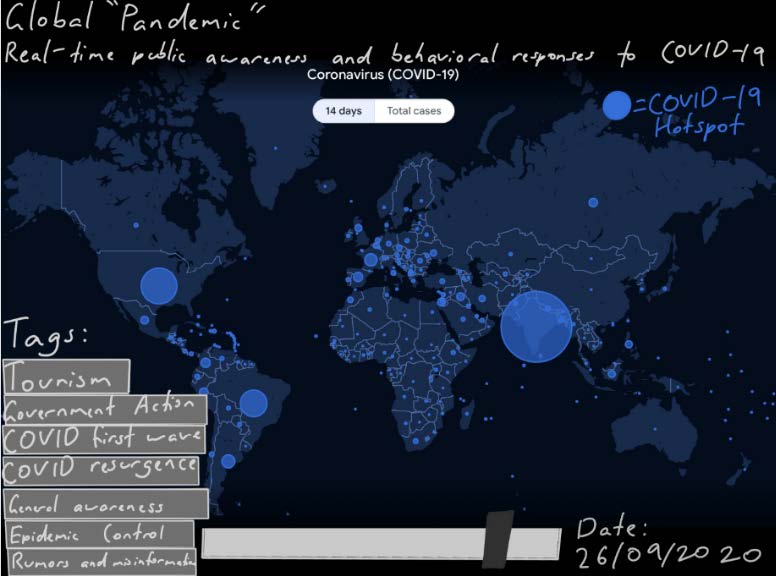 Global "Pandemic"
Real-time public awareness and behavioral responses to COVID-19
Coronavirus (COVID-19)
14 days Total cases
=COVID-19
Hotspot
Tags:
Tourism
Government Action
COVID first wave
COVID resurgence
General awareness
Epidemic Control
Rumors and misinformation
Date:
26/09/2020